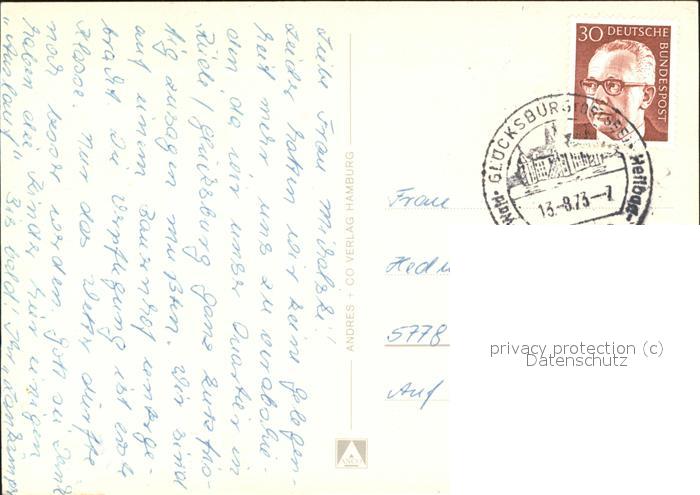 Liebe Frau Michalski!
Leider hatten wir keine Gelegen-
heit mehr uns zu verabschie-
den da wir unser Quartier in
Rüde / Glücksburg ganz kurzfris-
tig zusagen mußten. Wir sind
auf einem Bauernhof unterge-
bracht. Die Verpflegung ist erste
Klasse. Nur das Wetter dürfte
noch besser werden. Gott sei Dank
haben die Kinder hier einigen
"Auslauf". Bis bald! Ihr
ANDRES + CO VERLAG HAMBURG
ANCO
30 DEUTSCHE
BUNDESPOST
GLÜCKSBURG (OSTSEE)
Heilbad
13.-8.73-7
Frau
Hedw
5778
Auf
privacy protection (c)
Datenschutz